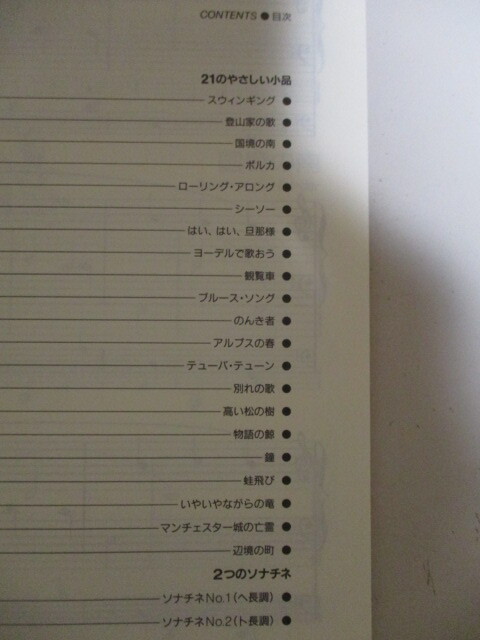 CONTENTS ● 目次
21のやさしい小品
スウィンギング ●
登山家の歌 ●
国境の南 ●
ポルカ ●
ローリング・アロング ●
シーソー ●
はい、はい、旦那様 ●
ヨーデルで歌おう ●
観覧車 ●
ブルース・ソング ●
のんき者 ●
アルプスの春 ●
テューバ・テューン ●
別れの歌 ●
高い松の樹 ●
物語の鯨 ●
鐘 ●
蛙飛び ●
いやいやながらの竜 ●
マンチェスター城の亡霊 ●
辺境の町 ●
2つのソナチネ
ソナチネNo.1(ヘ長調) ●
ソナチネNo.2(ト長調) ●